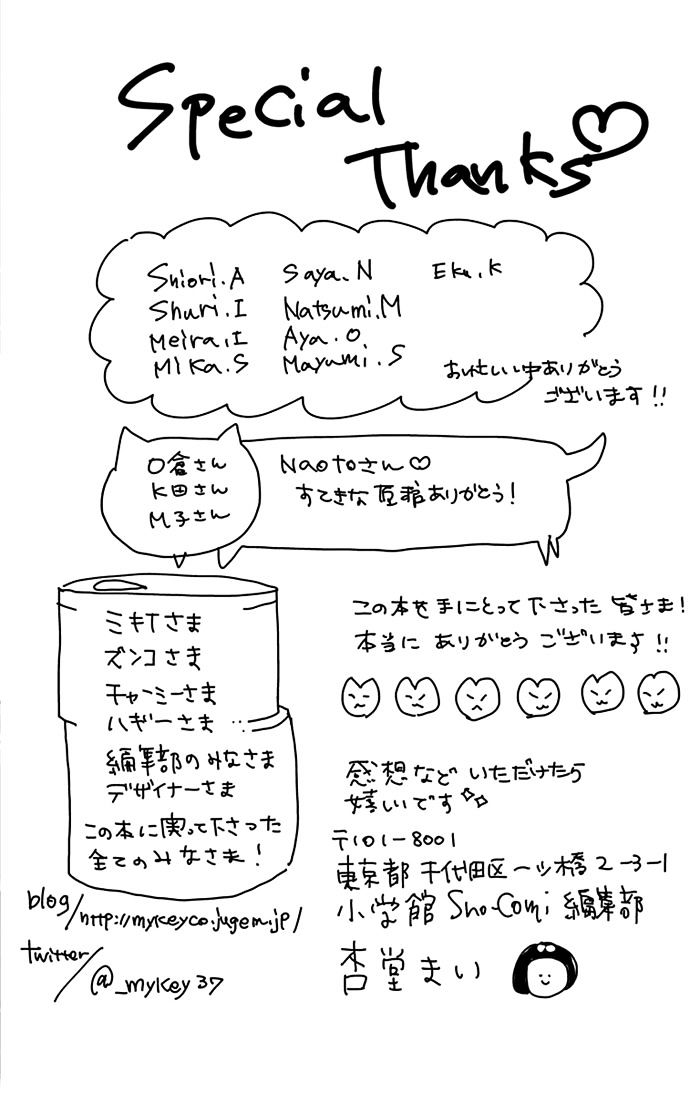 Special
Thanks
Shiori.A Saya.N Eku.K
Shuri.I Natsumi.M
Meira.I Aya.O
Mika.S Mayumi.S
お忙しい中ありがとう
ございます!!
O倉さん
K田さん
M子さん
Naotoさん♡
すてきな原稿ありがとう!
ミキTさま
ズンコさま
チャーミーさま
ハギーさま
編集部のみなさま
デザイナーさま
この本に関って下さった
全てのみなさま!
この本を手にとって下さった皆さま!
本当にありがとうございます!!
感想などいただけたら
嬉しいです
〒101-8001
東京都千代田区一ツ橋2-3-1
小学館 Sho-Comi 編集部
杏堂まい
blog/http://mykeyco.jugem.jp/
twitter/@_mykey37